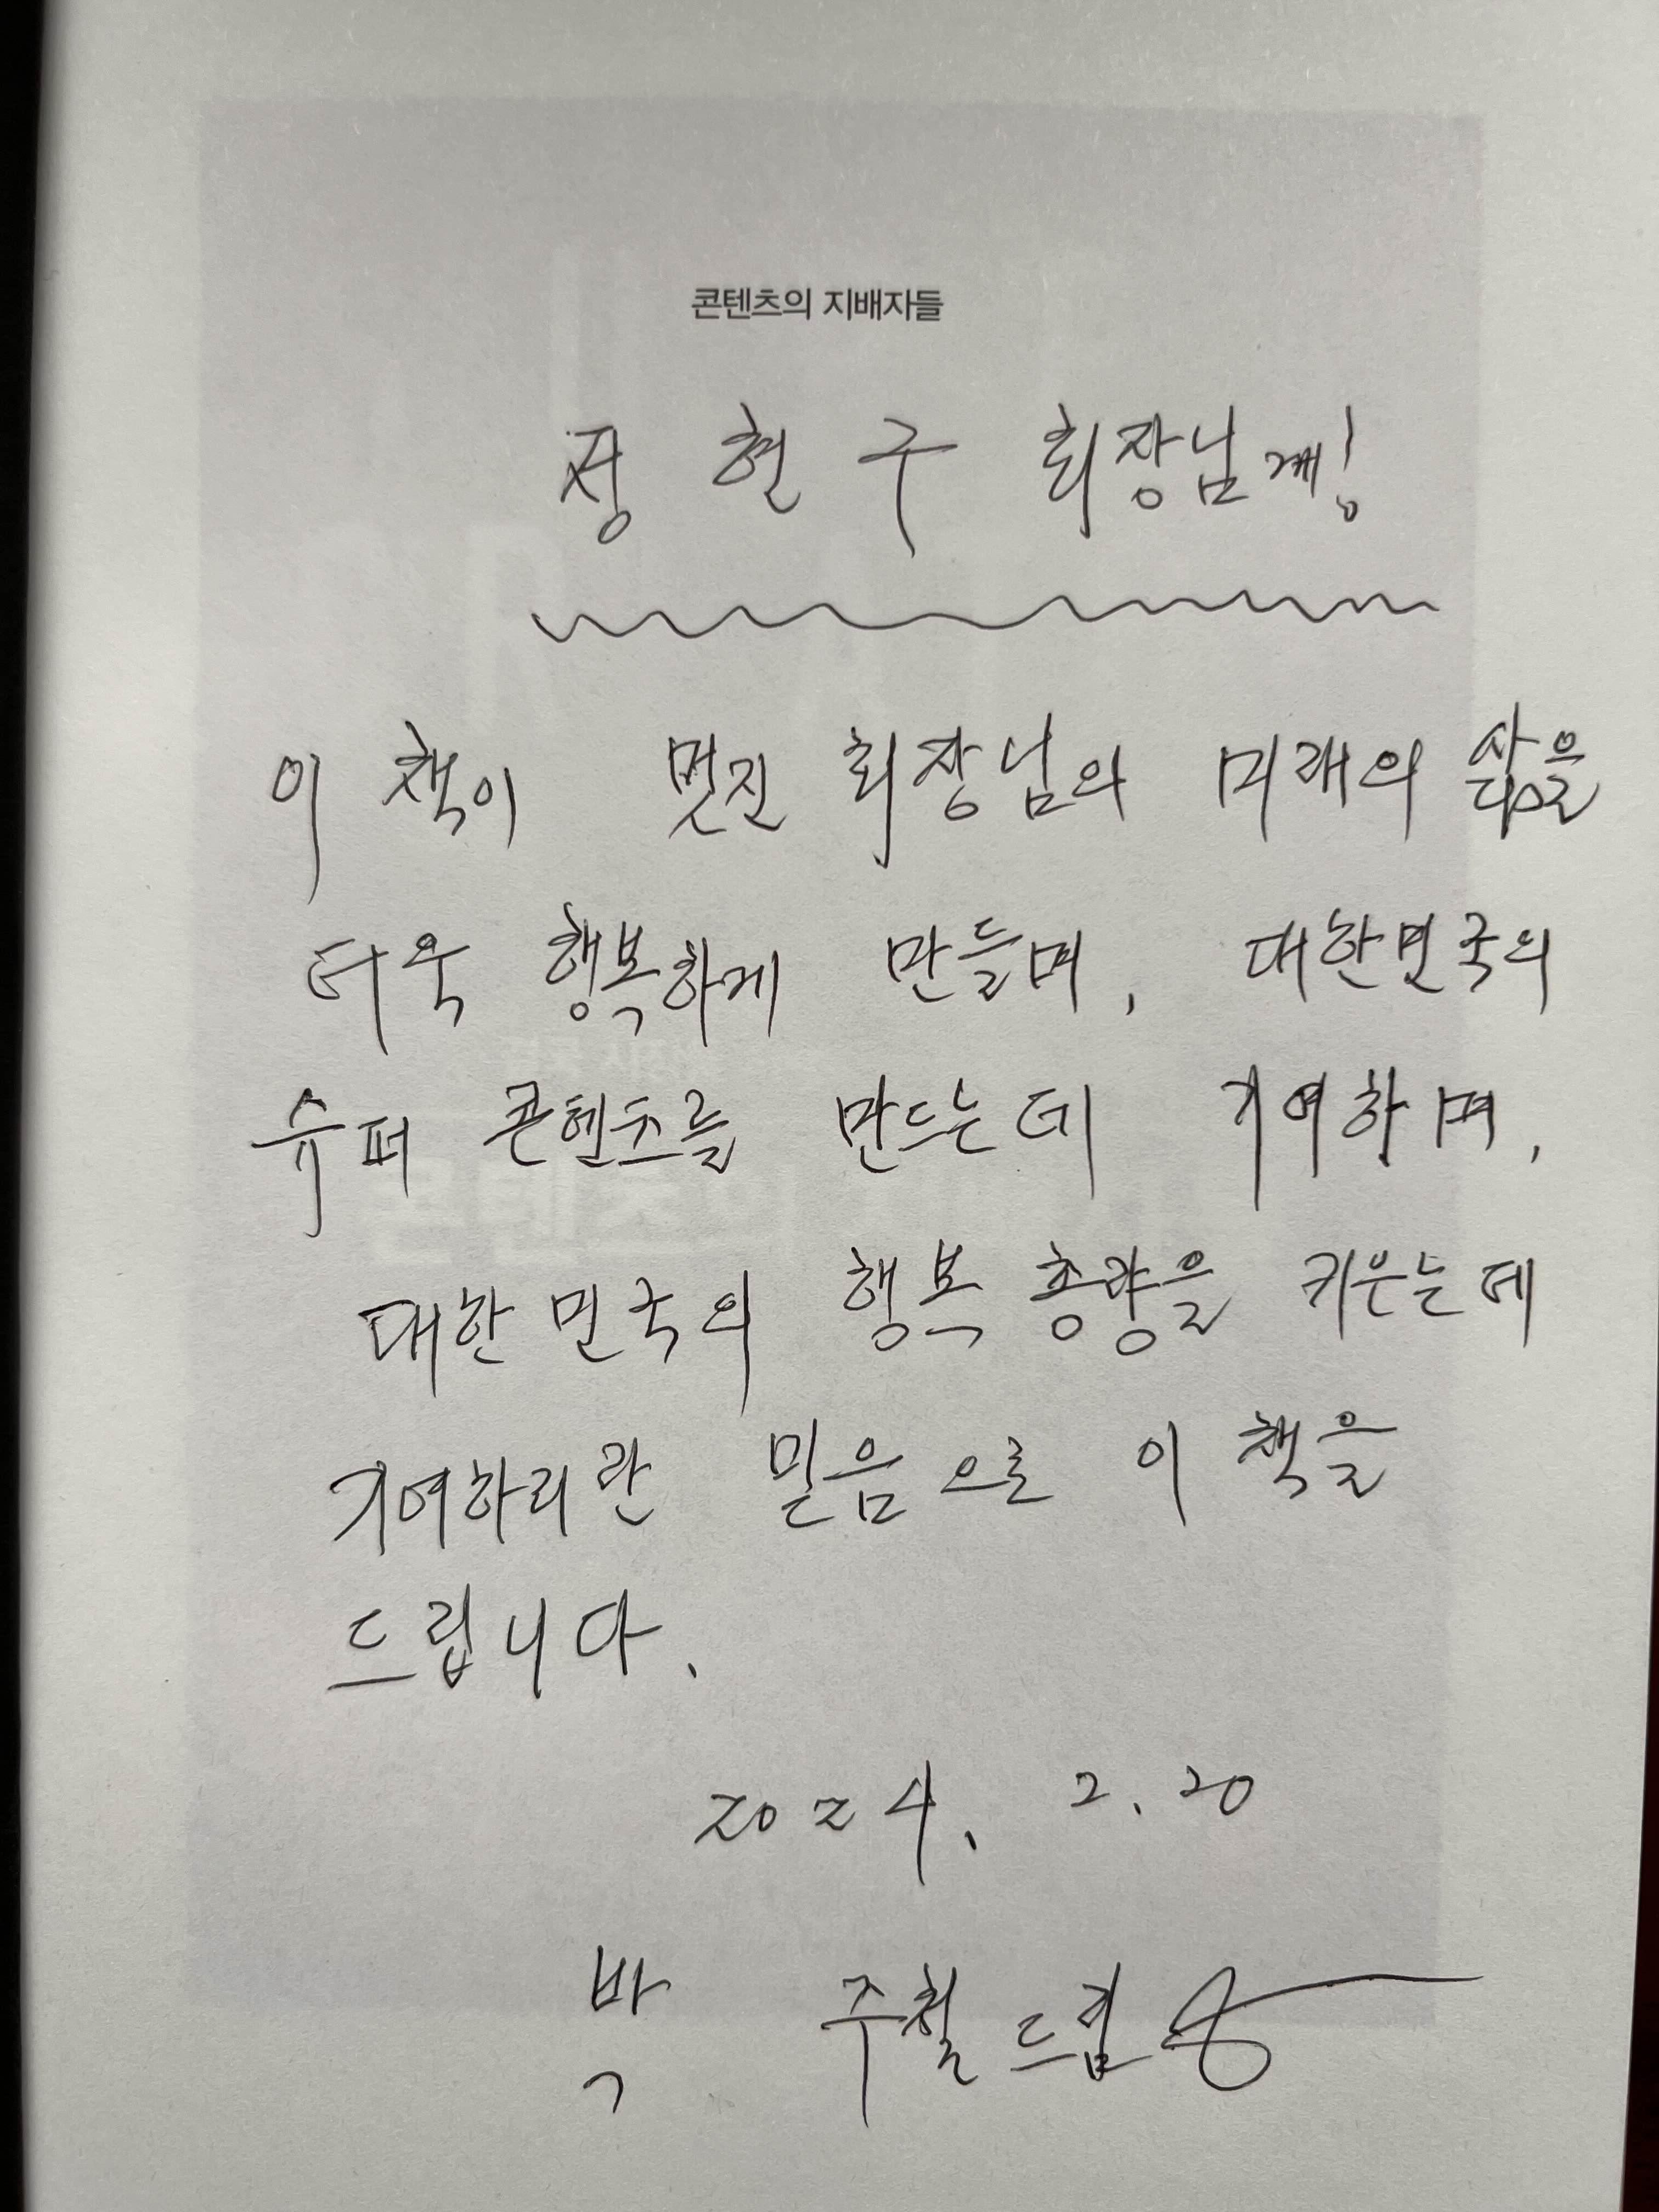 콘텐츠의 지배자들
정 현 구 회장님께!
이 책이 멋진 회장님의 미래의 삶을
더욱 행복하게 만들며, 대한민국의
슈퍼 콘텐츠를 만드는데 기여하며,
대한민국의 행복 총량을 키우는데
기여하리란 믿음으로 이 책을
드립니다.
2024. 2. 20
박 주철 드림